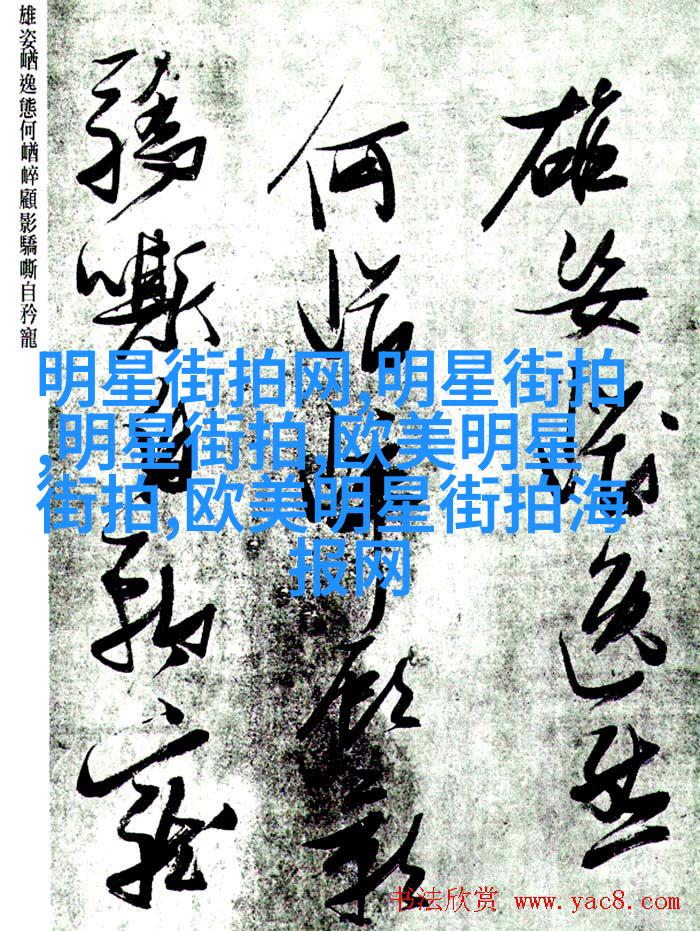 雄姿崷逸態
何崷崪顧影
驕嘶自矜寵
雄姿崷逸態何崷崪顧影驕嘶自矜寵
明星街拍网,明星街拍
,明星街拍,欧美明星
街拍,欧美明星街拍海
报网
书法欣赏 www.yac8.com